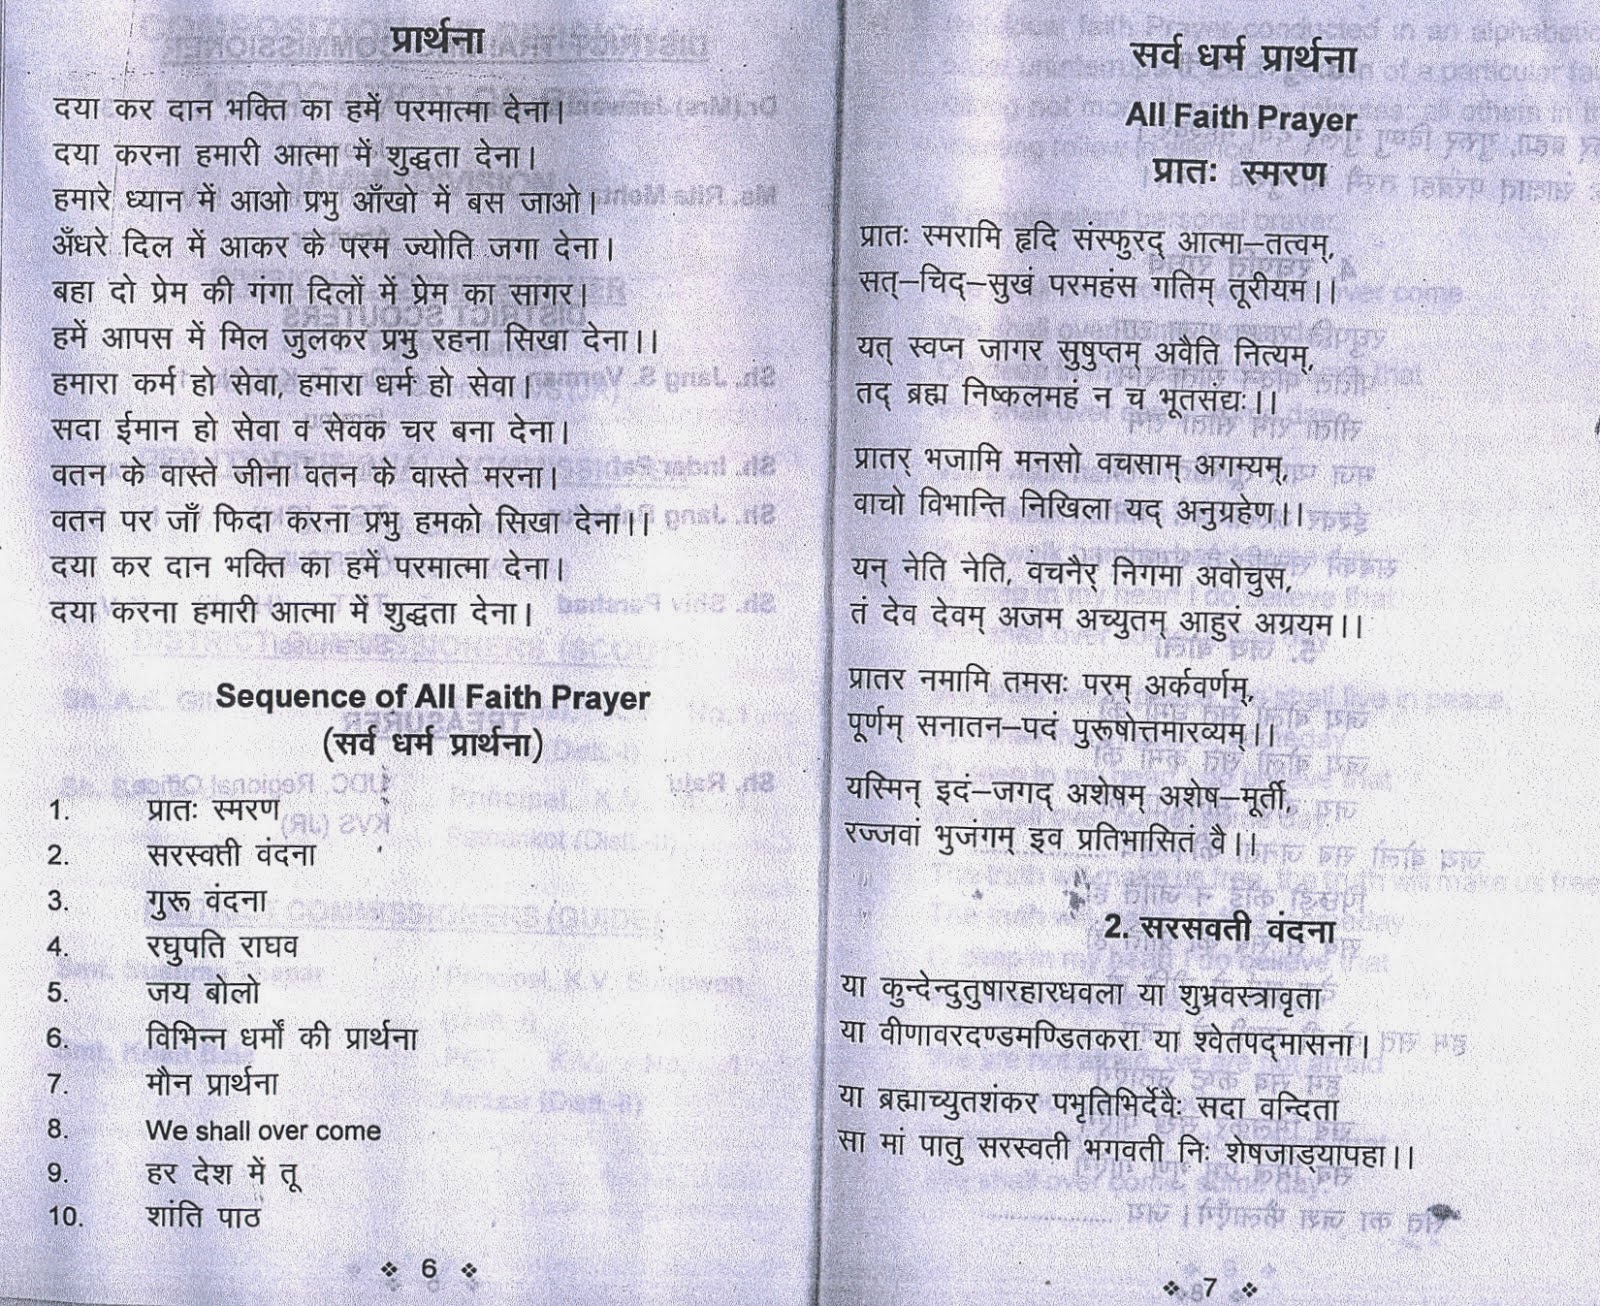 प्रार्थना
दया कर दान भक्ति का हमें परमात्मा देना।
दया करना हमारी आत्मा में शुद्धता देना।
हमारे ध्यान में आओ प्रभु आँखो में बस जाओ।
अँधरे दिल में आकर के परम ज्योति जगा देना।
बहा दो प्रेम की गंगा दिलों में प्रेम का सागर।
हमें आपस में मिल जुलकर प्रभु रहना सिखा देना।।
हमारा कर्म हो सेवा, हमारा धर्म हो सेवा।
सदा ईमान हो सेवा व सेवक चर बना देना।
वतन के वास्ते जीना वतन के वास्ते मरना।
वतन पर जाँ फिदा करना प्रभु हमको सिखा देना।।
दया कर दान भक्ति का हमें परमात्मा देना।
दया करना हमारी आत्मा में शुद्धता देना।
Sequence of All Faith Prayer
(सर्व धर्म प्रार्थना)
1. प्रातः स्मरण
2. सरस्वती वंदना
3. गुरू वंदना
4. रघुपति राघव
5. जय बोलो
6. विभिन्न धर्मों की प्रार्थना
7. मौन प्रार्थना
8. We shall over come
9. हर देश में तू
10. शांति पाठ
❖ 6 ❖
सर्व धर्म प्रार्थना
All Faith Prayer
प्रातः स्मरण
प्रातः स्मरामि हृदि संस्फुरद् आत्मा–तत्वम्,
सत्–चिद्–सुखं परमहंस गतिम् तूरीयम।।
यत् स्वप्न जागर सुषुप्तम् अवैति नित्यम्,
तद् ब्रह्म निष्कलमहं न च भूतसंद्यः।।
प्रातर् भजामि मनसो वचसाम् अगम्यम्,
वाचो विभान्ति निखिला यद् अनुग्रहेण।।
यन् नेति नेति, वचनैर् निगमा अवोचुस,
तं देव देवम् अजम अच्युतम् आहुरं अग्रयम।।
प्रातर नमामि तमसः परम् अर्कवर्णम्,
पूर्णम् सनातन–पदं पुरूषोत्तमारव्यम्।।
यस्मिन् इदं–जगद् अशेषम् अशेष–मूर्ती,
रज्जवां भुजंगम् इव प्रतिभासितं वै।।
2. सरसवती वंदना
या कुन्देन्दुतुषारहारधवला या शुभ्रवस्त्रावृता
या वीणावरदण्डमण्डितकरा या श्वेतपद्मासना।
या ब्रह्माच्युतशंकर पभृतिभिर्देवैः सदा वन्दिता
सा मां पातु सरस्वती भगवती निः शेषजाड्यापहा।।
❖ 7 ❖